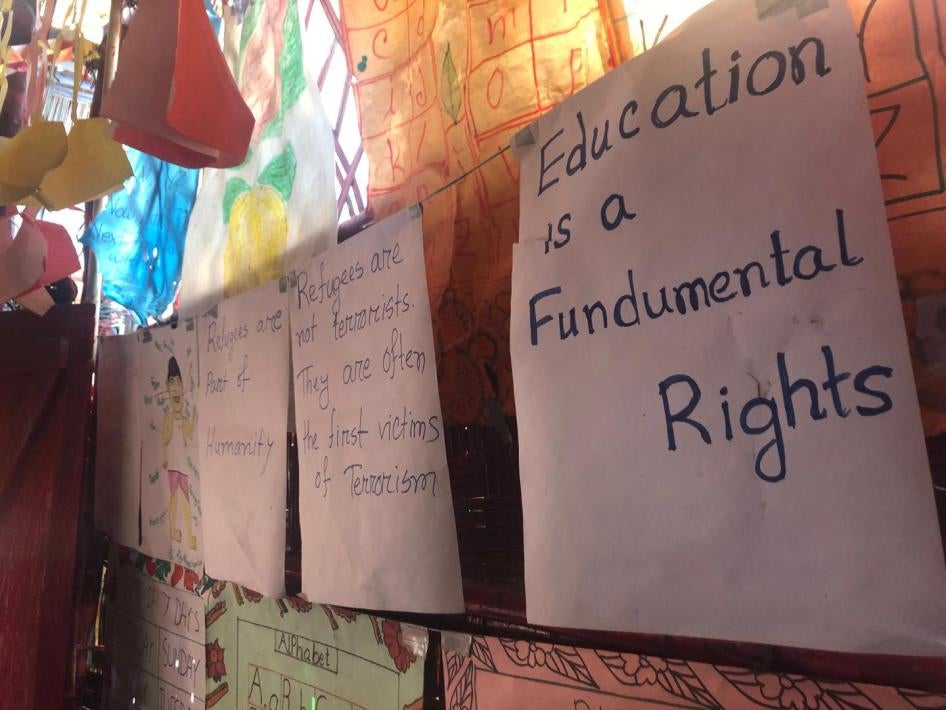 Education
is a
Fundumental
Rights
Refugees are
not terrorists.
They are often
the first victims
of Terrorism
Refugees are
Part of
Humanity
OF 7 DAYS
SUNDAY
Alphabet